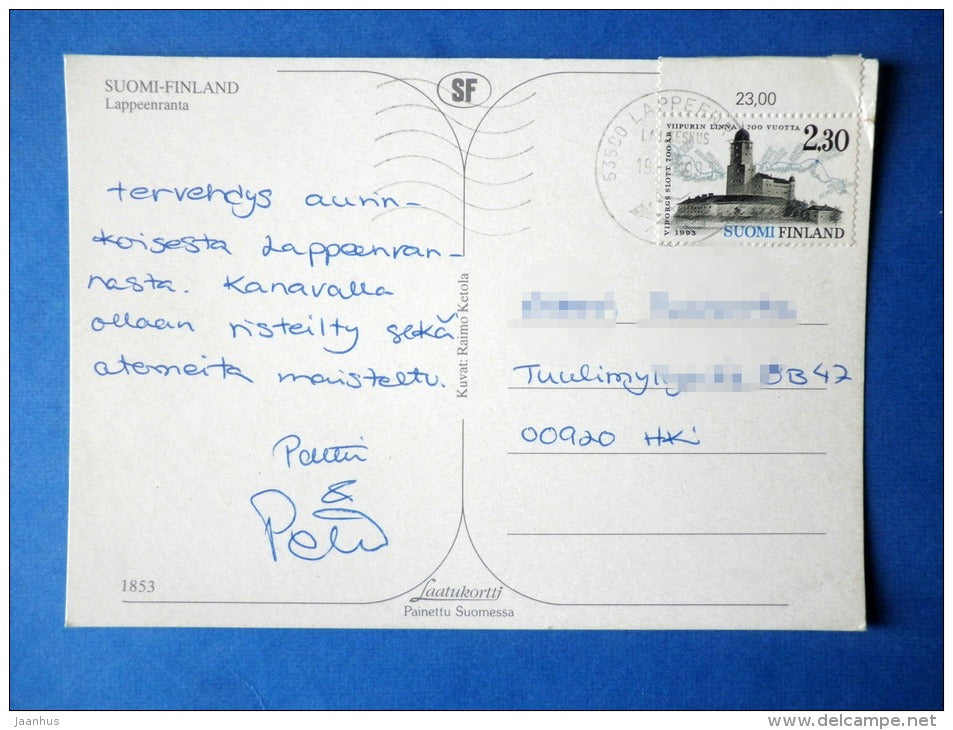 SUOMI-FINLAND
Lappeenranta
SF
23,00
53500 LAPPEEN
VIIPURIN LINNA 700 VUOTTA
VIBORGS SLOTT 700 ÅR
2,30
1993
SUOMI FINLAND
tervehdys aurin-
koisesta Lappeenran-
nasta. Kanavalla
ollaan risteilty sekä
aterneita maisteltu.
&
Kuvat: Raimo Ketola
BB47
00920 HKi
1853
Laatukortti
Painettu Suomessa
Jaanhus
www.delcampe.net